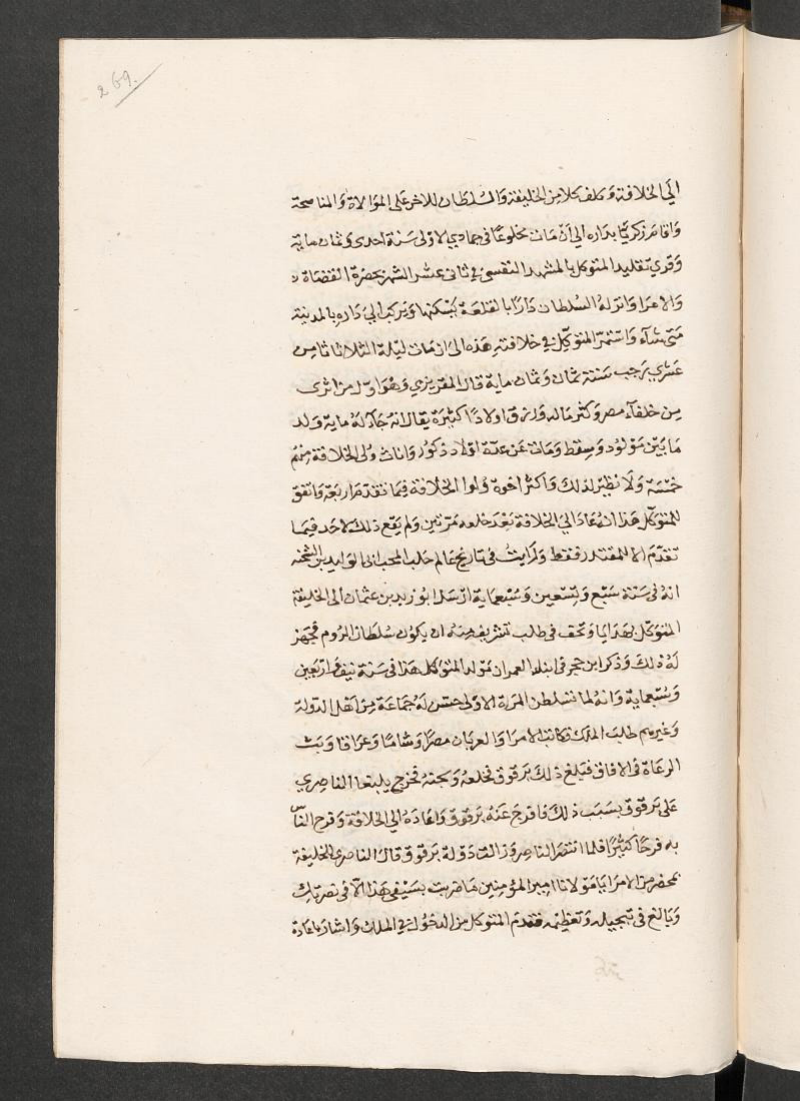 269.
الي الخلافة وحلف كلا من الخليفة والسلطان للاخر على الموالاة والمناصحة
واقام زكريا بداره الي ان مات مخلوعا في جمادي الاولى سنة احدى وثمان ماية
وقري تقليد المتوكل بالمشهد النفسي في ثاني عشر الشهر بحضرة القضاة
والامرا وانزله السلطان دارا بالقلعة يسكنها ويركب الي داره بالمدينة
متى شآء واستمر المتوكل في خلافته هذه الى ان مات ليلة الثلاثا ثامن
عشري رجب سنة ثمان وثمان ماية قال المقريزي وهو اول من اثرى
من خلفآء مصر وكثر ماله ورزق اولادا كثيرة يقال انه جآء له ماية ولد
ما بين مولود وسقط ومات عن عدة اولاد ذكور واناث ولى الخلافة منهم
خمسة ولا نظير لذلك واكثر اخوة ولوا الخلافة فيما تقدم اربعة واتفق
للمتوكل هذا انه عاد الي الخلافة بعد خلعه مرتين ولم يقع ذلك لاحد فيما
تقدم الا للمقتدر فقط ورايت في تاريخ عالم حلب المحب ابي الوليد بن الشحنه
انه في سنة سبع وتسعين وسبعماية ارسل ابو زيد بن عثمان الى الخليفة
المتوكل بهدايا وتحف في طلب تشريف منه ان يكون سلطان الروم فجهز
له ذلك وذكر ابن حجر في ابنا العمر ان مولد المتوكل هذا في سنة نيف واربعين
وسبعماية وانه لما تسلطن المرة الاولى حسن له جماعة من اهل الدولة
وغيرهم طلب الملك فكاتب الامرا والعربان مصرا وشاما وعراقا وبث
الرعاة في الافاق فبلغ ذلك برقوق فخلعه وسجنه فخرج يلبغا الناصري
على برقوق بسبب ذلك فافرج عنه برقوق واعاده الي الخلافة وفرح الناس
به فرحا كثيرا فلما انتصر الناصر وزالت دولة برقوق قال الناصري للخليفة
بمحضر من الامرا يا مولانا امير المؤمنين ما ضربت بسيفي هذا الا في نصرتك
وبالغ في تبجيله وتعظيمه فتقدم المتوكل من الدخول في الملك واشار باعادة